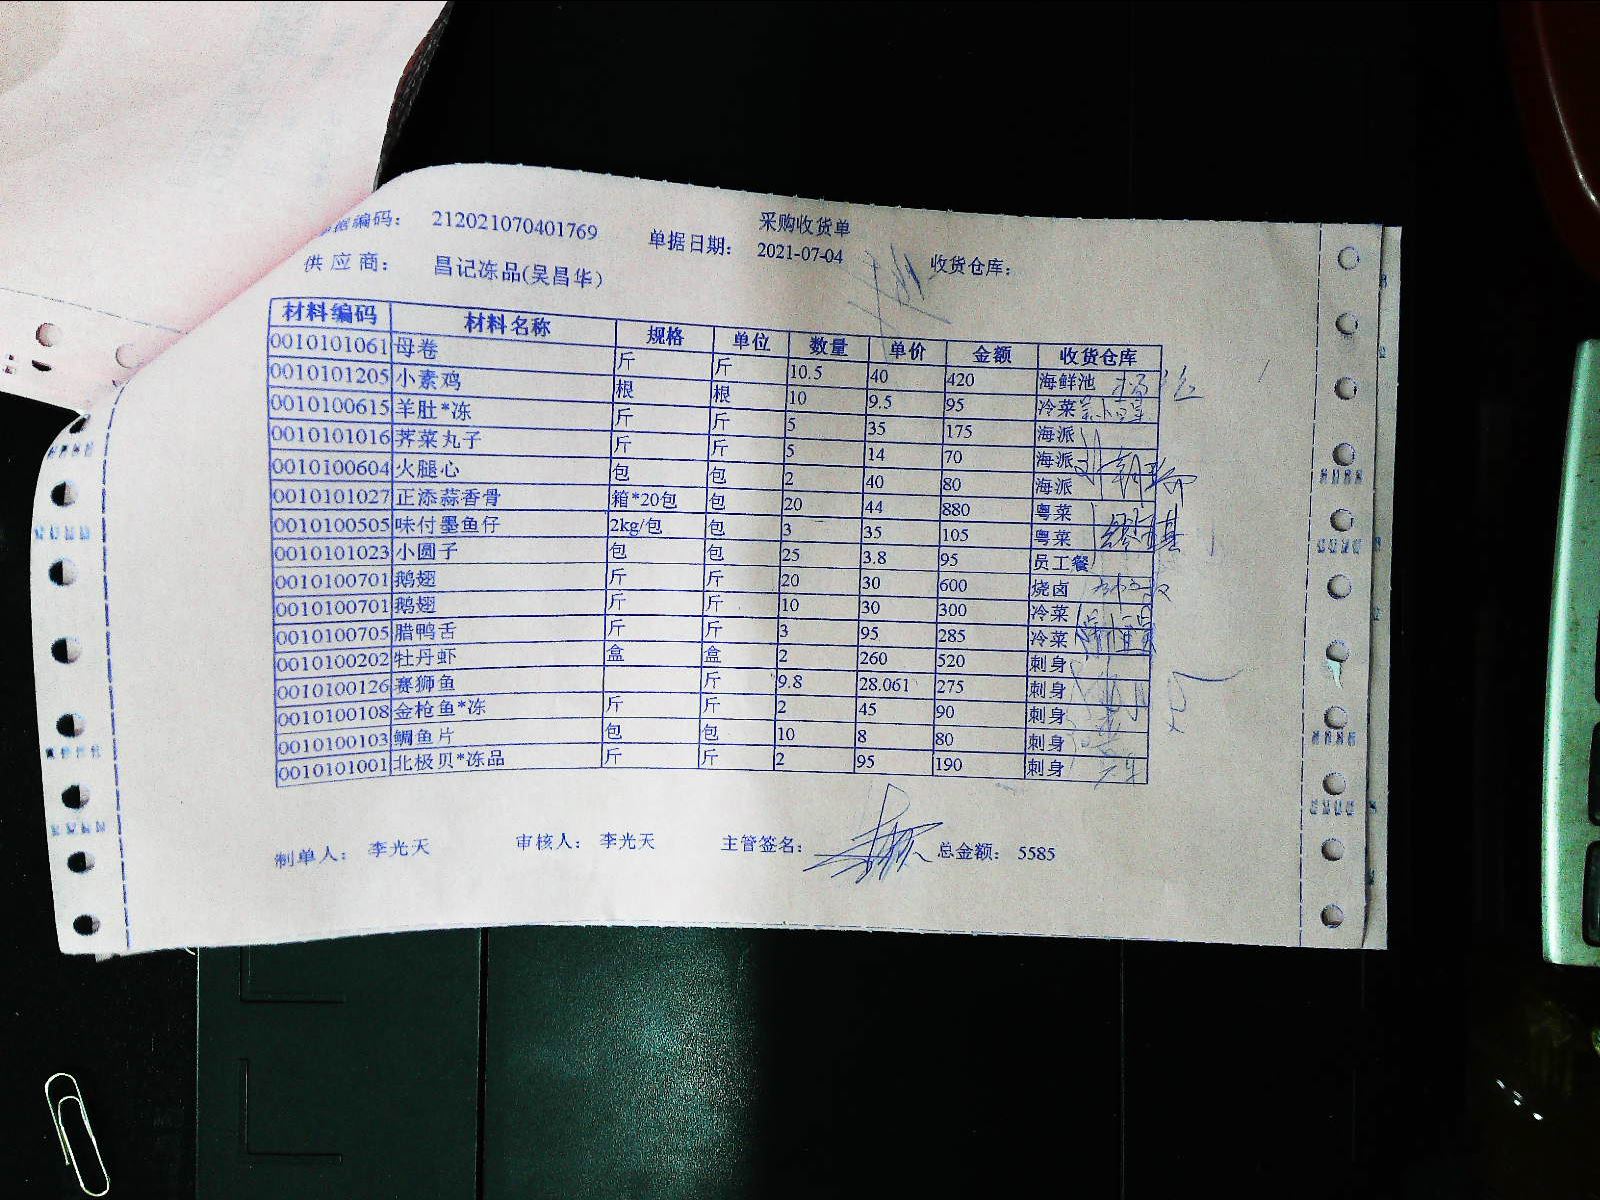 采购收货单
据编码： 212021070401769 单据日期： 2021-07-04 收货仓库：
供应商： 昌记冻品(吴昌华)
材料编码 材料名称 规格 单位 数量 单价 金额 收货仓库
0010101061 母卷 斤 斤 10.5 40 420 海鲜池
0010101205 小素鸡 根 根 10 9.5 95 冷菜
0010100615 羊肚*冻 斤 斤 5 35 175 海派
0010101016 荠菜丸子 斤 斤 5 14 70 海派
0010100604 火腿心 包 包 2 40 80 海派
0010101027 正添蒜香骨 箱*20包 包 20 44 880 粤菜
0010100505 味付墨鱼仔 2kg/包 包 3 35 105 粤菜
0010101023 小圆子 包 包 25 3.8 95 员工餐
0010100701 鹅翅 斤 斤 20 30 600 烧卤
0010100701 鹅翅 斤 斤 10 30 300 冷菜
0010100705 腊鸭舌 斤 斤 3 95 285 冷菜
0010100202 牡丹虾 盒 盒 2 260 520 刺身
0010100126 赛狮鱼 斤 9.8 28.061 275 刺身
0010100108 金枪鱼*冻 斤 斤 2 45 90 刺身
0010100103 鲷鱼片 包 包 10 8 80 刺身
0010101001 北极贝*冻品 斤 斤 2 95 190 刺身
制单人： 李光天 审核人： 李光天 主管签名： 总金额： 5585